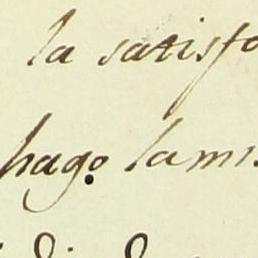 la satisfa
hago lamis